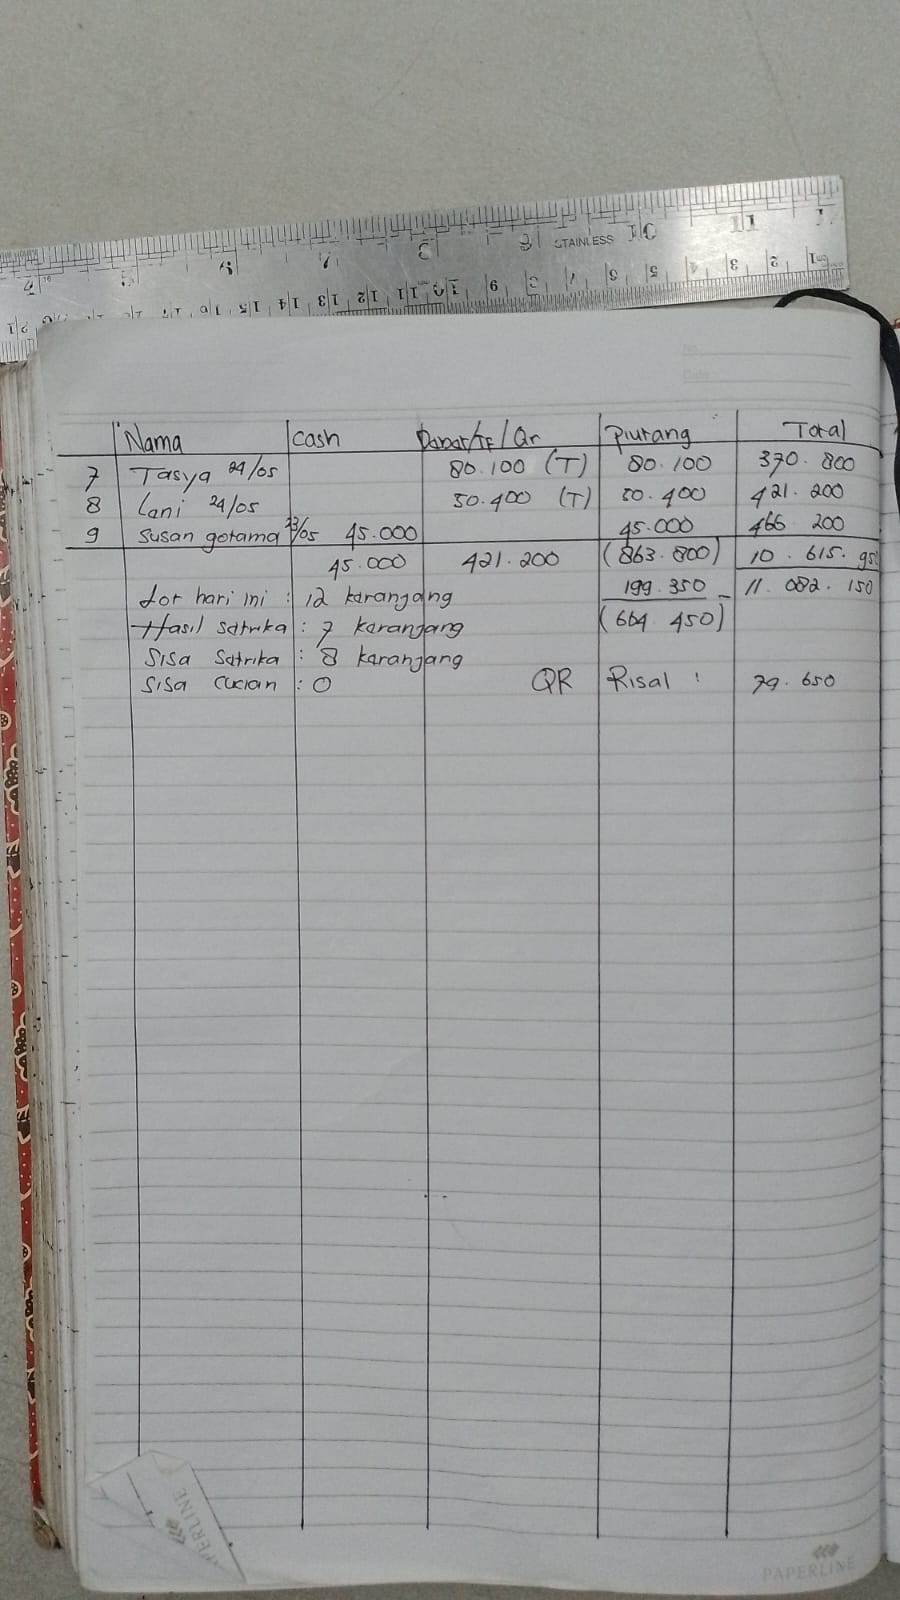 STAINLESS
No.
Date
Nama Cash Danar/TF/Qr Piutang Total
7 Tasya 24/05 80.100 (T) 80.100 370.800
8 Lani 24/05 50.400 (T) 50.400 421.200
9 Susan gotama 23/05 45.000 45.000 466.200
45.000 421.200 (863.800) 10.615.95
Lor hari ini : 12 karangang 199.350 - 11.082.150
Hasil Satrika : 7 karangang (664.450)
Sisa Satrika : 8 karangang
Sisa Cucian : 0 QR Risal : 79.650
PERLINE
PAPERLINE